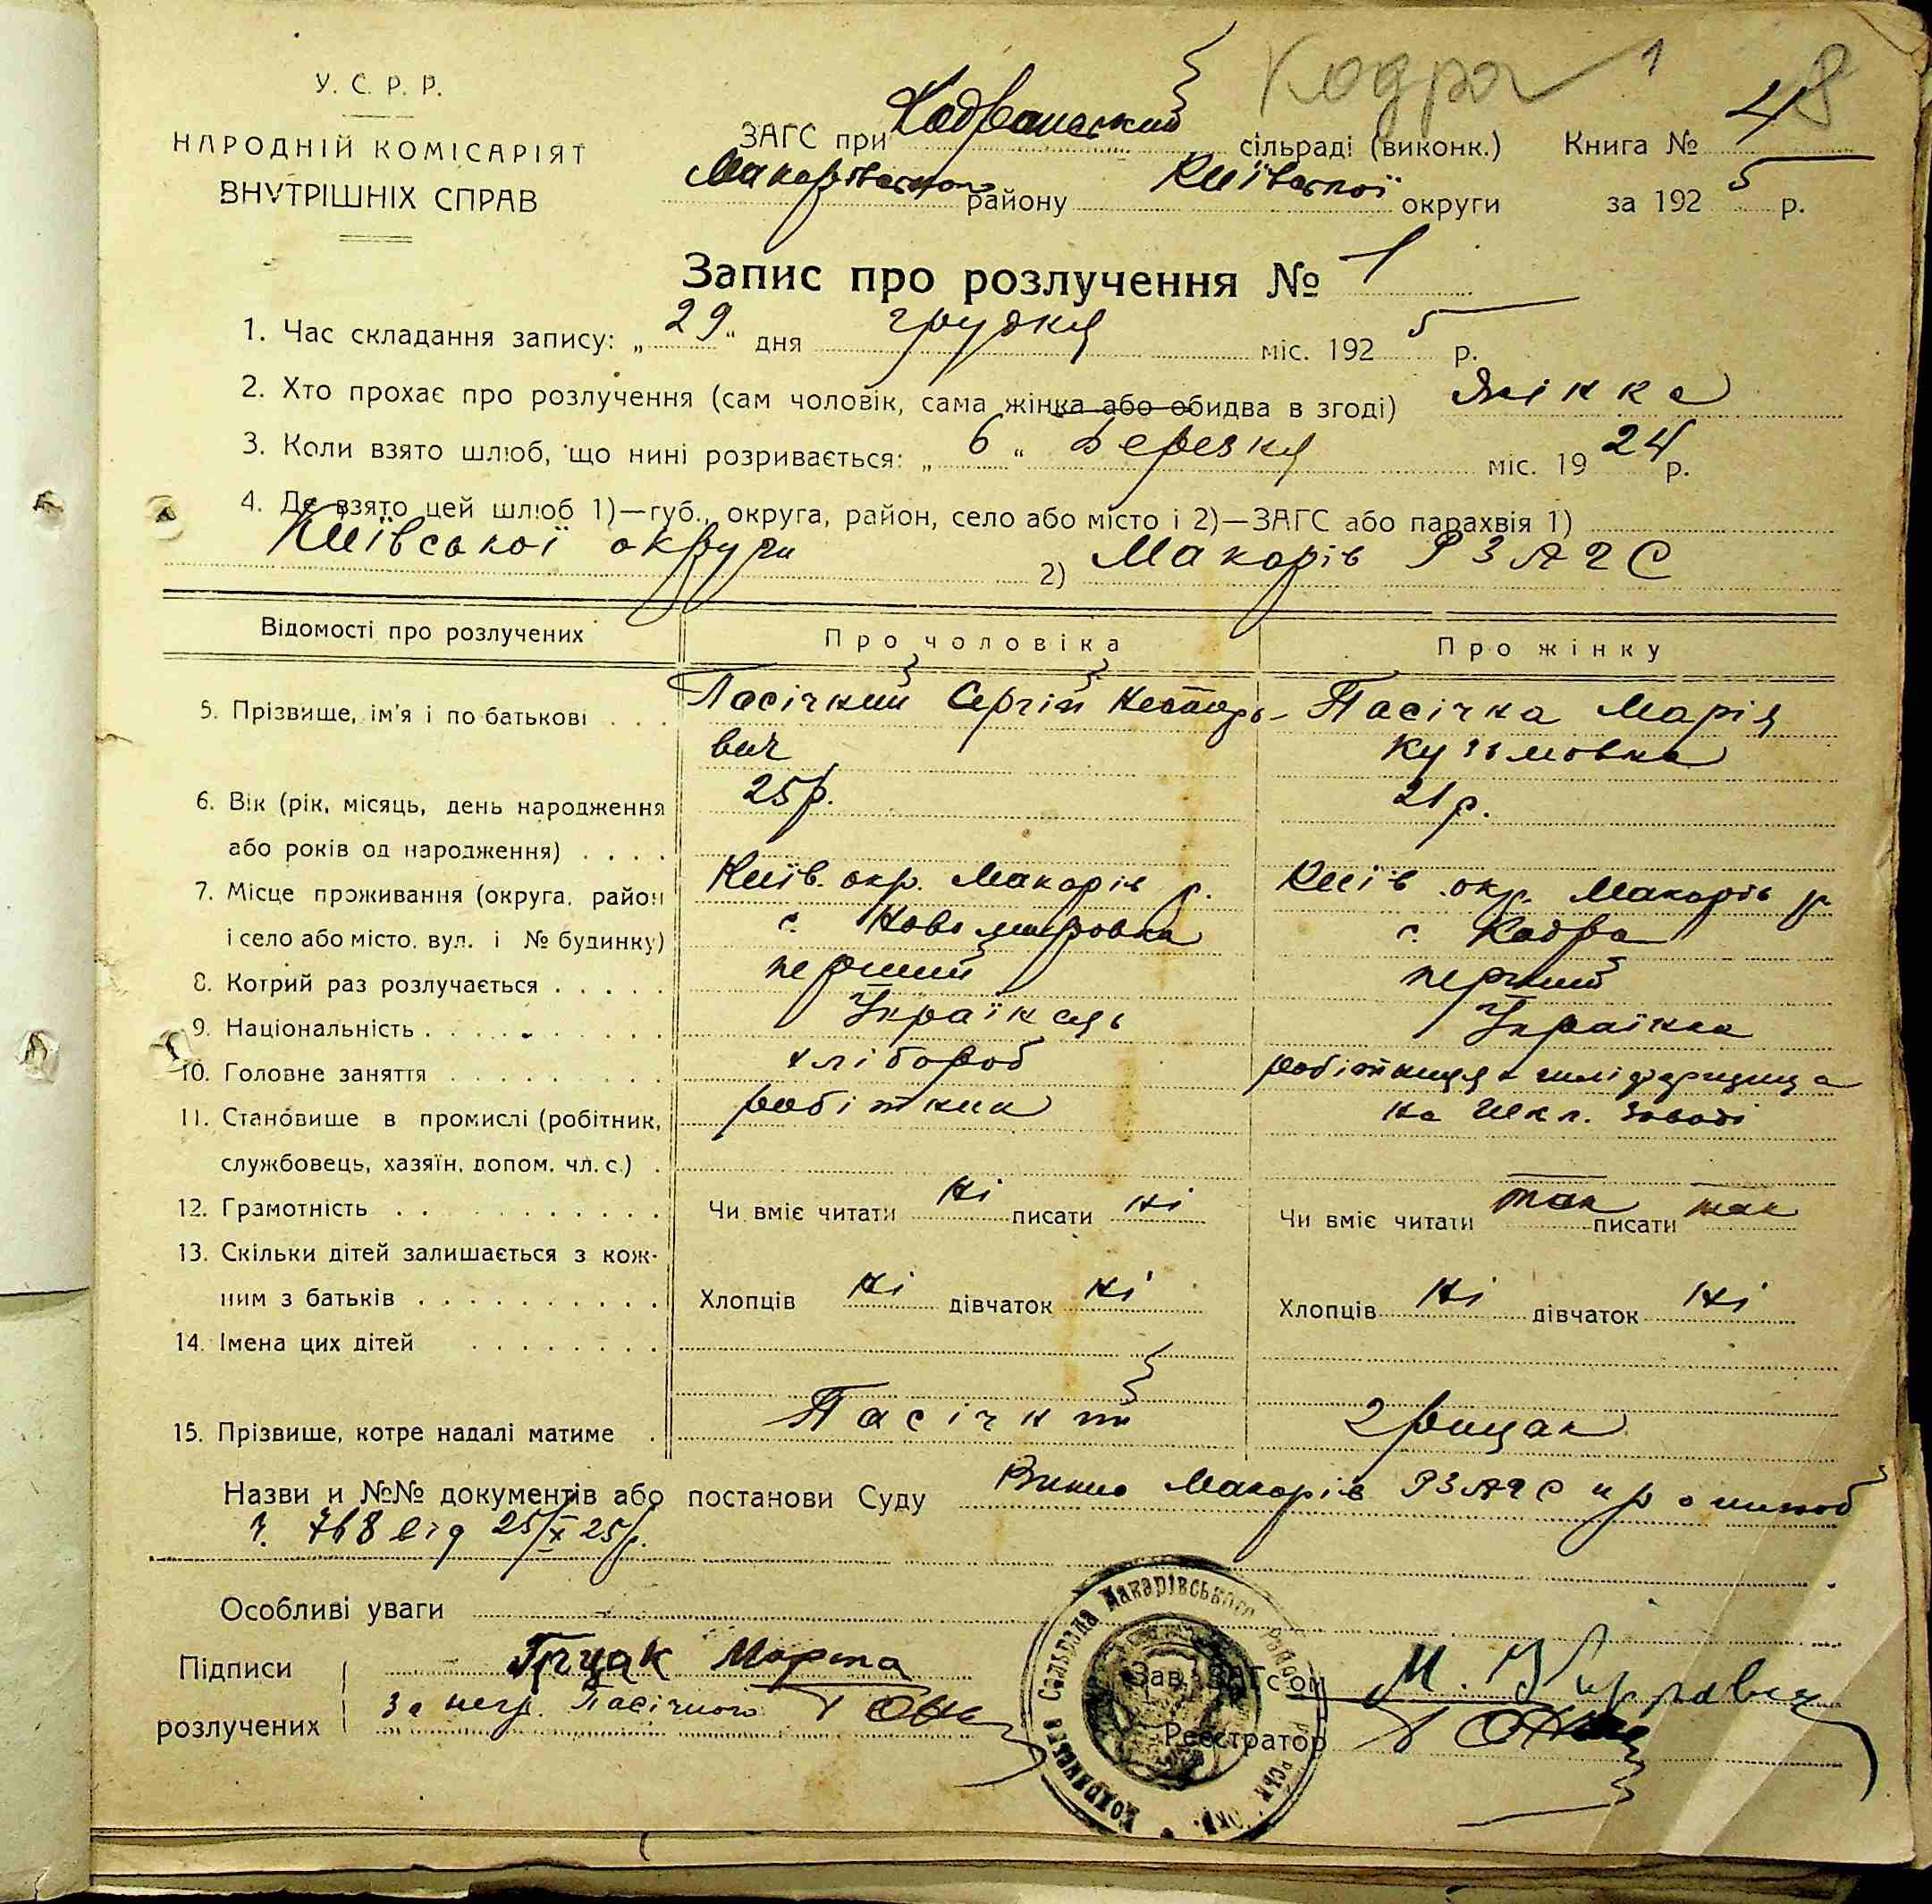 Кодра 1 8
У. С. Р. Р.
НАРОДНІЙ КОМІСАРІЯТ
ВНУТРІШНІХ СПРАВ
ЗАГС при Кодранський сільраді (виконк.) Книга № 4
Макарівського району Київської округи за 1925 р.
Запис про розлучення № 1
1. Час складання запису: „29“ дня грудня міс. 1925 р.
2. Хто прохає про розлучення (сам чоловік, сама жінка або обидва в згоді) жінка
3. Коли взято шлюб, що нині розривається: „6“ березня міс. 1924 р.
4. Де взято цей шлюб 1)—губ., округа, район, село або місто і 2)—ЗАГС або парахвія 1)
Київської округи 2) Макарів РЗАГС
Відомості про розлучених Про чоловіка Про жінку
5. Прізвище, ім'я і по батькові . . . Пасічний Сергій Нестеро- Пасічна Марія
вич Кузьмовна
6. Вік (рік, місяць, день народження 25 р. 21 р.
або років од народження) . . . .
7. Місце проживання (округа, район Київ. окр. Макарів р. Київ окр. Макарів р
і село або місто, вул. і № будинку) с. Новомировка с. Кодра
8. Котрий раз розлучається . . . . . перший перший
9. Національність . . . . . . . . . . Українець Українка
10. Головне заняття . . . . . . . . . хлібороб робітниця
11. Становище в промислі (робітник, робітник на Шкл. Заводі
службовець, хазяїн, допом. чл. с.) .
12. Грамотність . . . . . . . . . . . Чи вміє читати ні писати ні Чи вміє читати так писати так
13. Скільки дітей залишається з кож-
ним з батьків . . . . . . . . . . Хлопців ні дівчаток ні Хлопців ні дівчаток ні
14. Імена цих дітей . . . . . . . .
15. Прізвище, котре надалі матиме . Пасічний Грицак
Назви и №№ документів або постанови Суду Макарів РЗАГС про шлюб
від 25/X 25 р.
Особливі уваги
Підписи Грцак Марта Зав. ЗАГСом М.
розлучених за негр. Пасічного Реєстратор
Кодрянська Сільрада Макарівського району